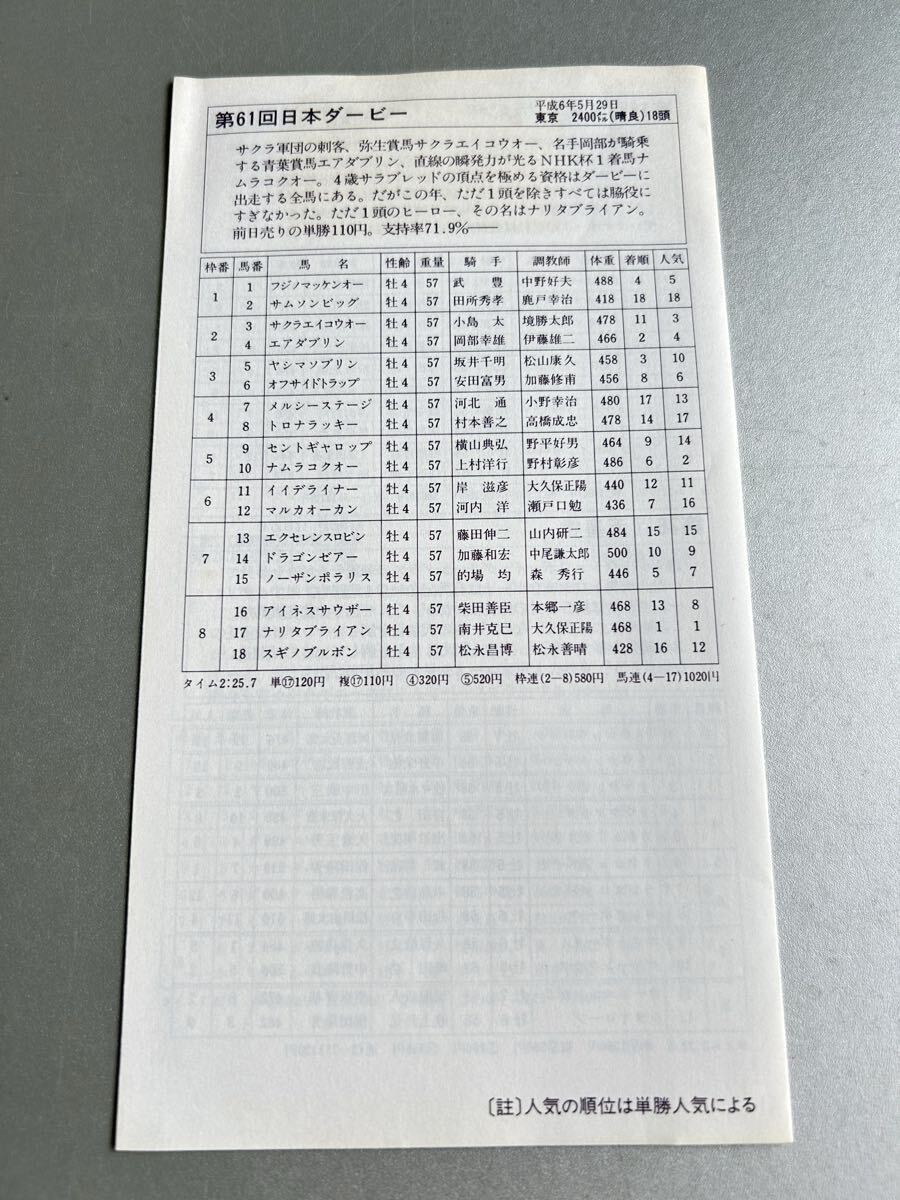 第61回日本ダービー
平成6年5月29日
東京 2400㍍(晴良)18頭
サクラ軍団の刺客、弥生賞馬サクラエイコウオー、名手岡部が騎乗
する青葉賞馬エアダブリン、直線の瞬発力が光るNHK杯1着馬ナ
ムラコクオー。4歳サラブレッドの頂点を極める資格はダービーに
出走する全馬にある。だがこの年、ただ1頭を除きすべては脇役に
すぎなかった。ただ1頭のヒーロー、その名はナリタブライアン。
前日売りの単勝110円。支持率71.9%――
枠番 馬番 馬名 性齢 重量 騎手 調教師 体重 着順 人気
1 1 フジノマッケンオー 牡4 57 武豊 中野好夫 488 4 5
2 サムソンビッグ 牡4 57 田所秀孝 鹿戸幸治 418 18 18
2 3 サクラエイコウオー 牡4 57 小島太 境勝太郎 478 11 3
4 エアダブリン 牡4 57 岡部幸雄 伊藤雄二 466 2 4
3 5 ヤシマソブリン 牡4 57 坂井千明 松山康久 458 3 10
6 オフサイドトラップ 牡4 57 安田富男 加藤修甫 456 8 6
4 7 メルシーステージ 牡4 57 河北通 小野幸治 480 17 13
8 トロナラッキー 牡4 57 村本善之 高橋成忠 478 14 17
5 9 セントギャロップ 牡4 57 横山典弘 野平好男 464 9 14
10 ナムラコクオー 牡4 57 上村洋行 野村彰彦 486 6 2
6 11 イイデライナー 牡4 57 岸滋彦 大久保正陽 440 12 11
12 マルカオーカン 牡4 57 河内洋 瀬戸口勉 436 7 16
7 13 エクセレンスロビン 牡4 57 藤田伸二 山内研二 484 15 15
14 ドラゴンゼアー 牡4 57 加藤和宏 中尾謙太郎 500 10 9
15 ノーザンポラリス 牡4 57 的場均 森秀行 446 5 7
8 16 アイネスサウザー 牡4 57 柴田善臣 本郷一彦 468 13 8
17 ナリタブライアン 牡4 57 南井克巳 大久保正陽 468 1 1
18 スギノブルボン 牡4 57 松永昌博 松永善晴 428 16 12
タイム2:25.7 単⑰120円 複⑰110円 ④320円 ⑤520円 枠連(2―8)580円 馬連(4―17)1020円
〔註〕人気の順位は単勝人気による